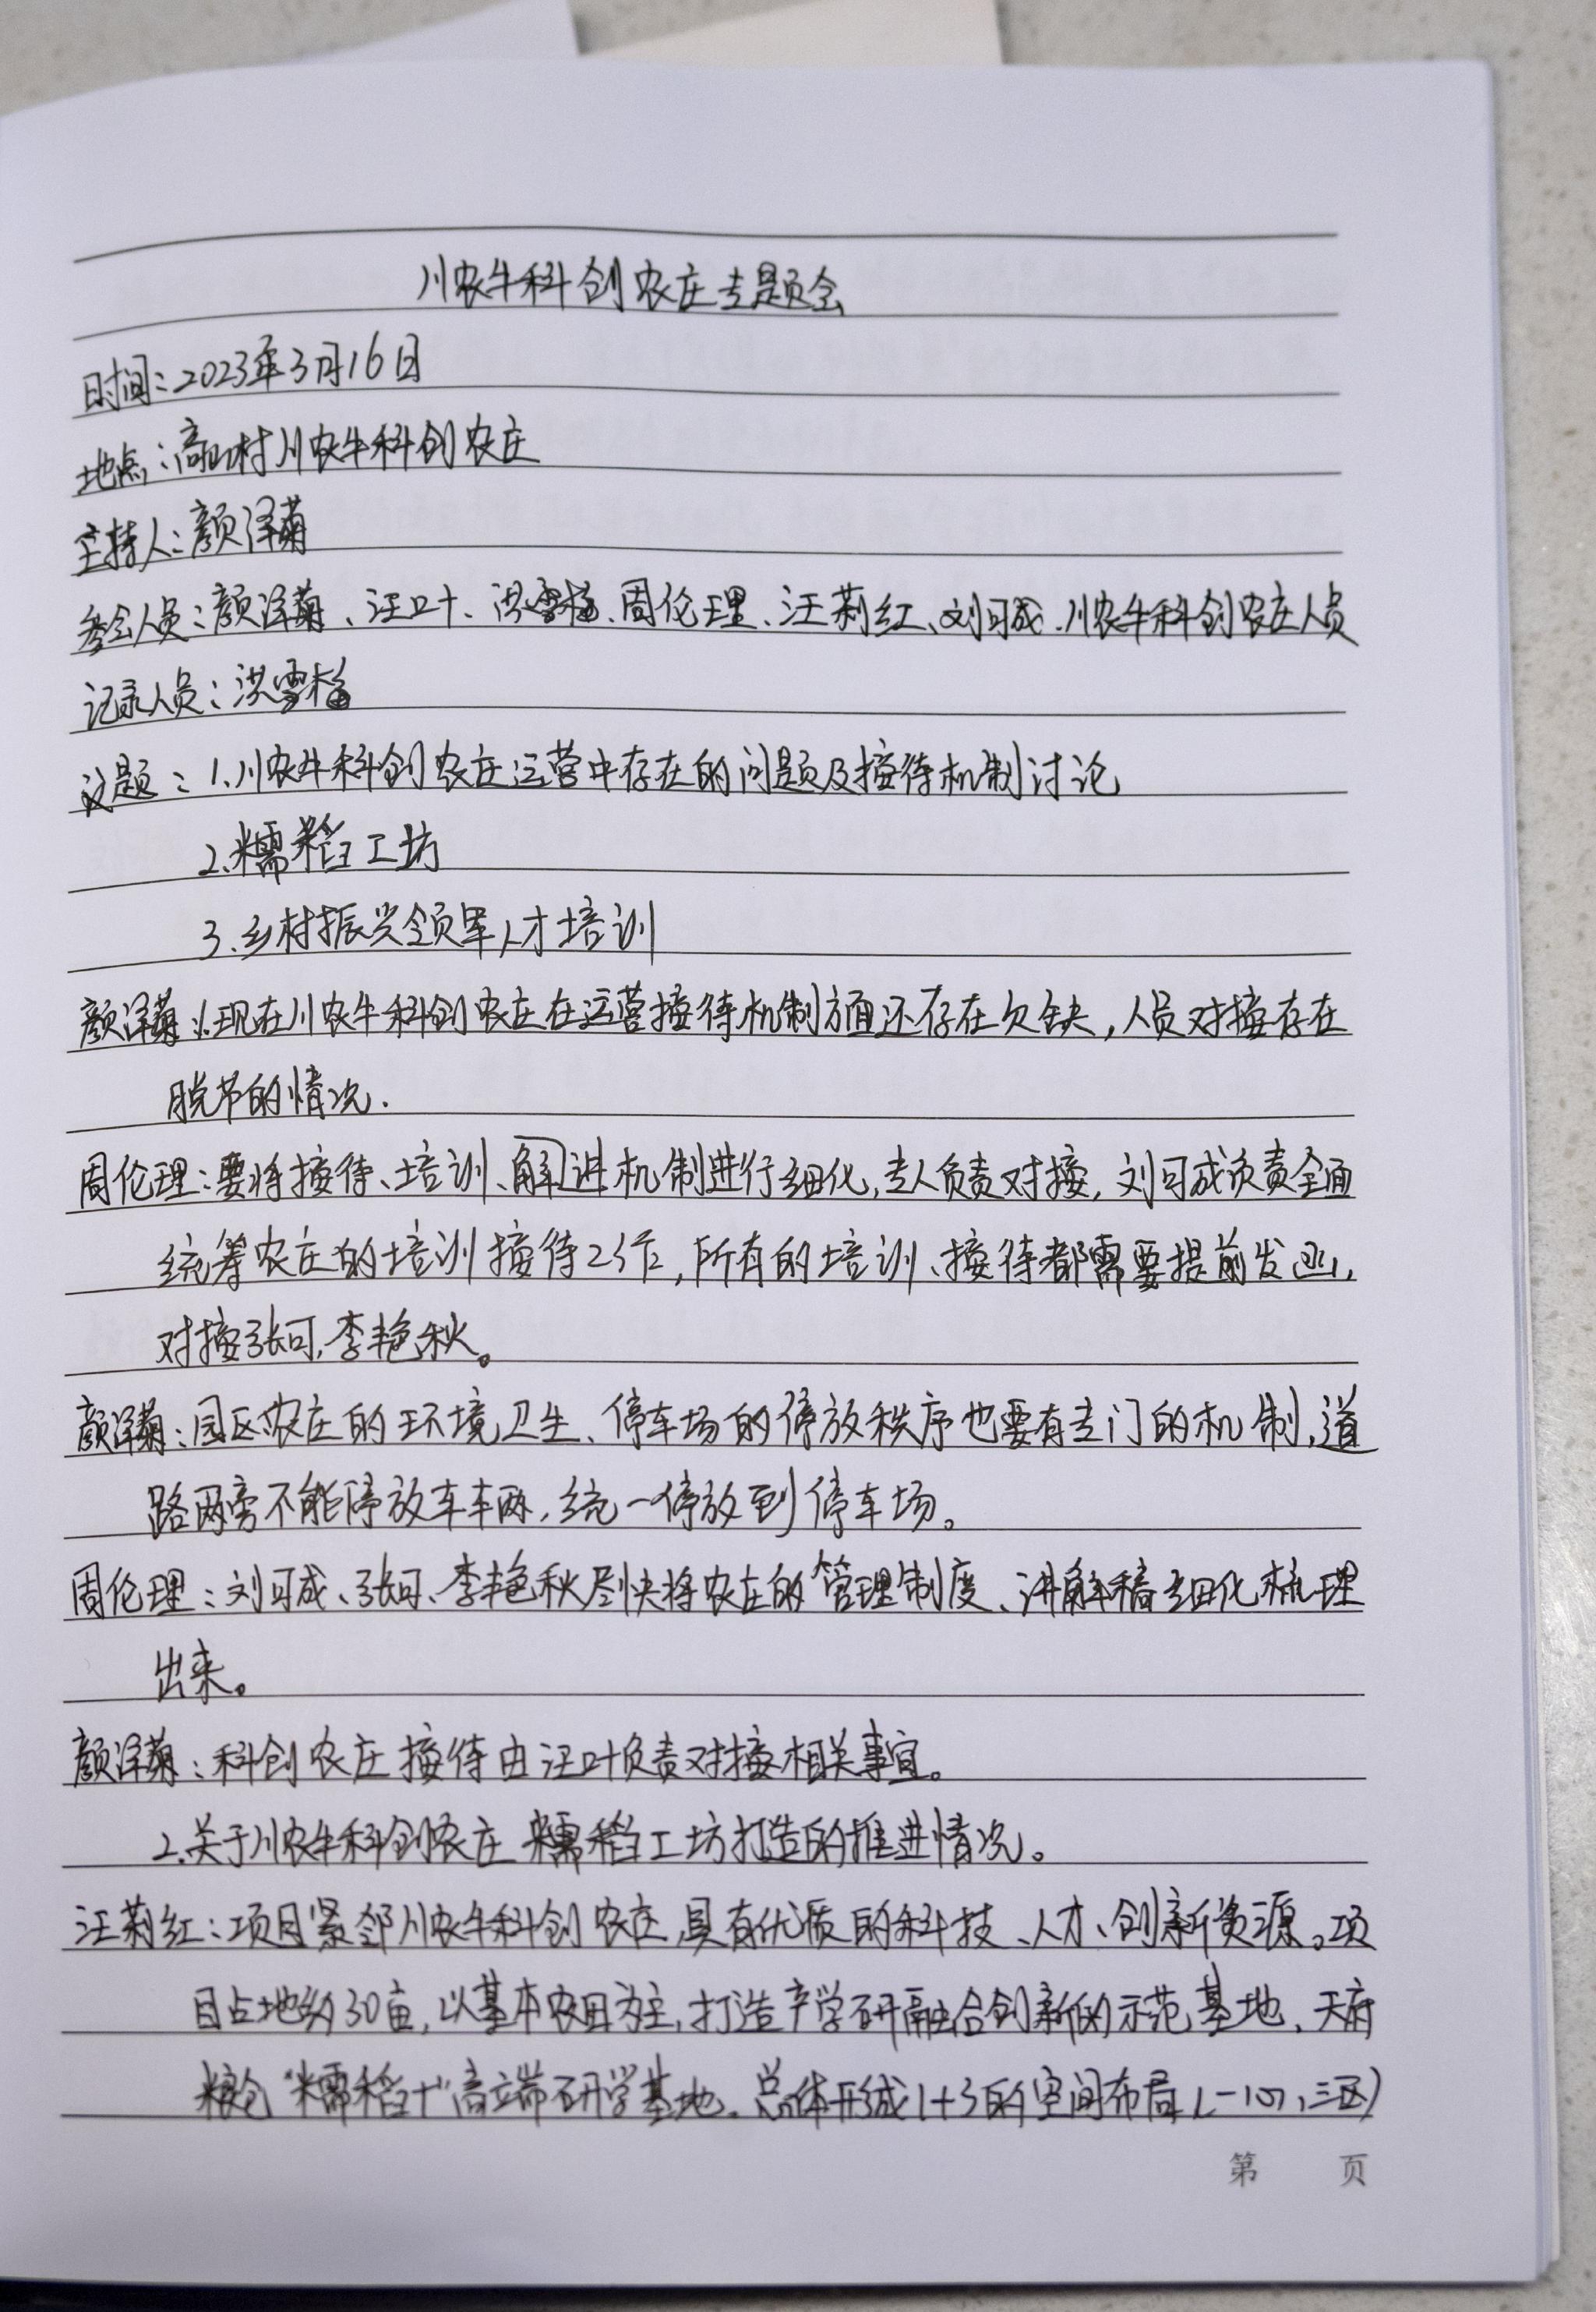 川农牛科创农庄专题会
时间：2023年3月16日
地点：高山村川农牛科创农庄
主持人：颜泽菊
参会人员：颜泽菊、汪叶、洪雪梅、周伦理、汪莉红、刘可成、川农牛科创农庄人员
记录人员：洪雪梅
议题：1.川农牛科创农庄运营中存在的问题及接待机制讨论
2.糯稻工坊
3.乡村振兴领军人才培训
颜泽菊：1.现在川农牛科创农庄在运营接待机制方面还存在欠缺，人员对接存在
脱节的情况.
周伦理：要将接待、培训、解说机制进行细化，专人负责对接，刘可成负责全面
统筹农庄的培训接待工作，所有的培训、接待都需要提前发函，
对接张可、李艳秋。
颜泽菊：园区农庄的环境卫生、停车场的停放秩序也要有专门的机制，道
路两旁不能停放车车辆，统一停放到停车场。
周伦理：刘可成、张可、李艳秋尽快将农庄的管理制度、讲解稿细化梳理
出来。
颜泽菊：科创农庄接待由汪叶负责对接相关事宜。
2.关于川农牛科创农庄糯稻工坊打造的推进情况。
汪莉红：项目紧邻川农牛科创农庄，具有优质的科技、人才、创新资源。项
目占地约30亩，以基本农田为主，打造产学研融合创新的示范基地、天府
粮仓“糯稻+”高端研学基地。总体形成1+3的空间布局（一心，三区）
第 页